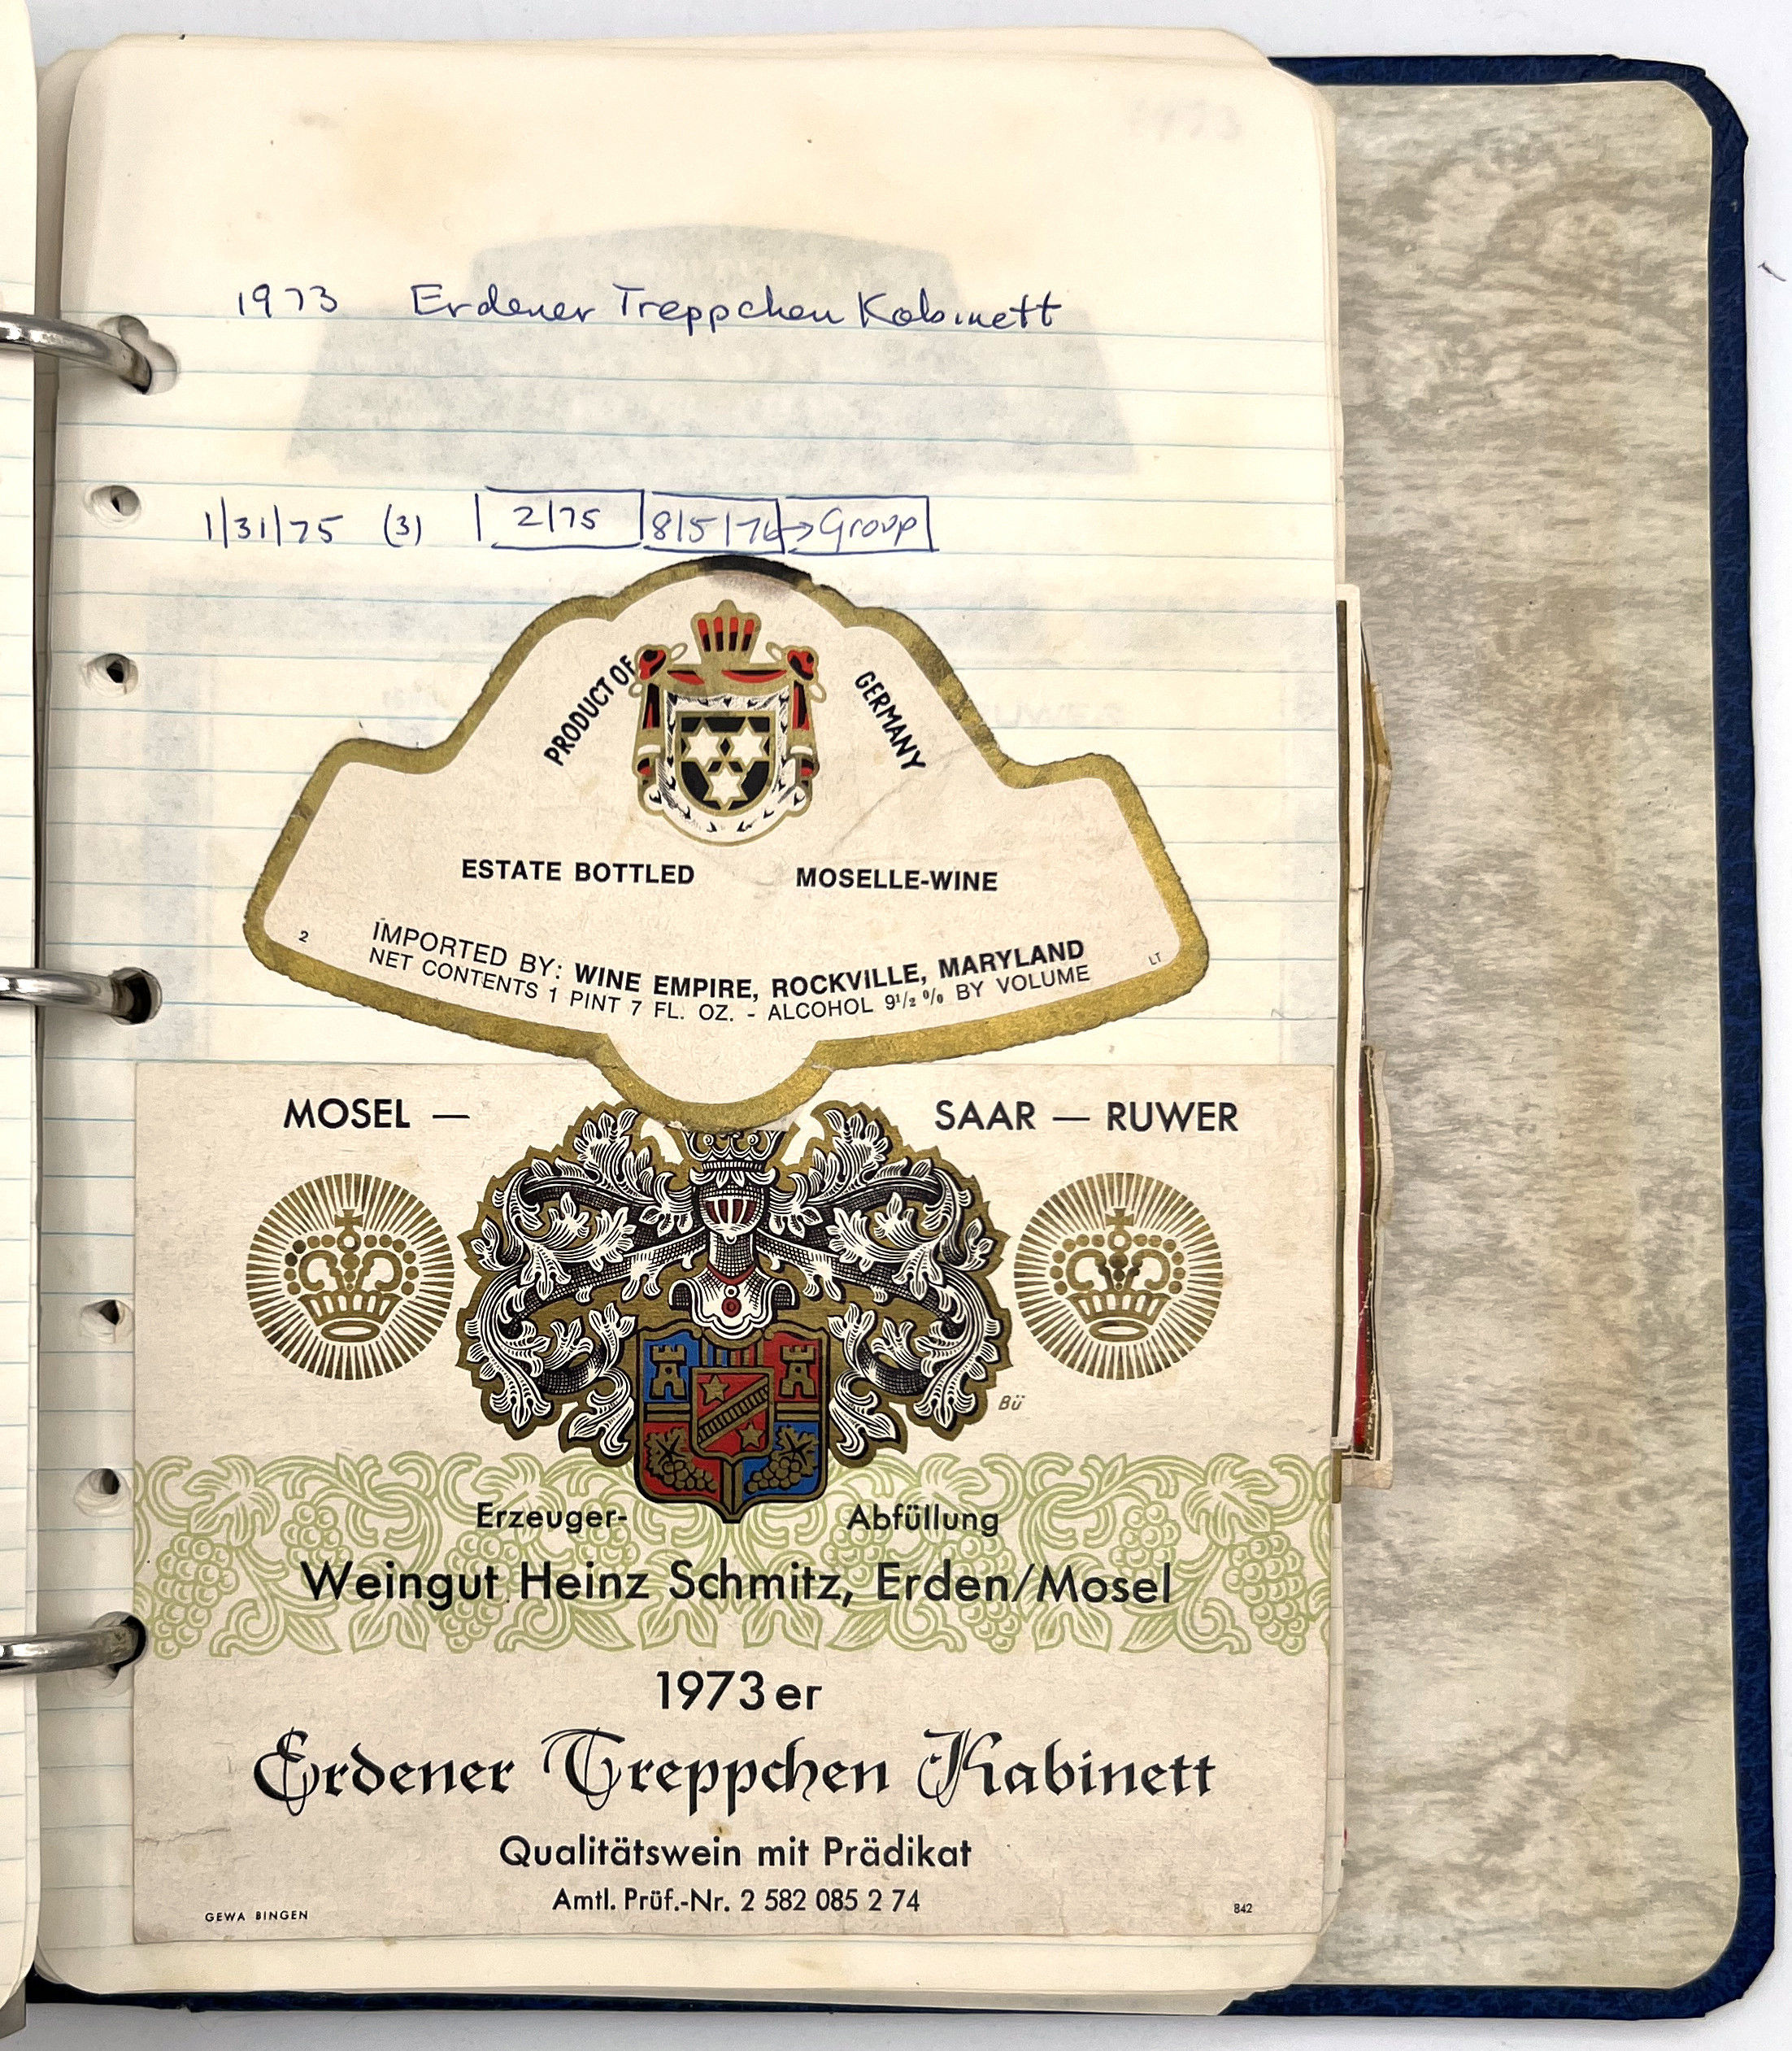 1973
1973 Erdener Treppchen Kabinett
1/31/75 (3) 2/75 8/5/76 → Group
PRODUCT OF GERMANY
ESTATE BOTTLED MOSELLE-WINE
2
IMPORTED BY: WINE EMPIRE, ROCKVILLE, MARYLAND
LT
NET CONTENTS 1 PINT 7 FL. OZ. - ALCOHOL 9 1/2 % BY VOLUME
MOSEL — SAAR — RUWER
Bü
Erzeuger- Abfüllung
Weingut Heinz Schmitz, Erden/Mosel
1973er
Erdener Treppchen Kabinett
Qualitätswein mit Prädikat
Amtl. Prüf.-Nr. 2 582 085 2 74
GEWA BINGEN 842